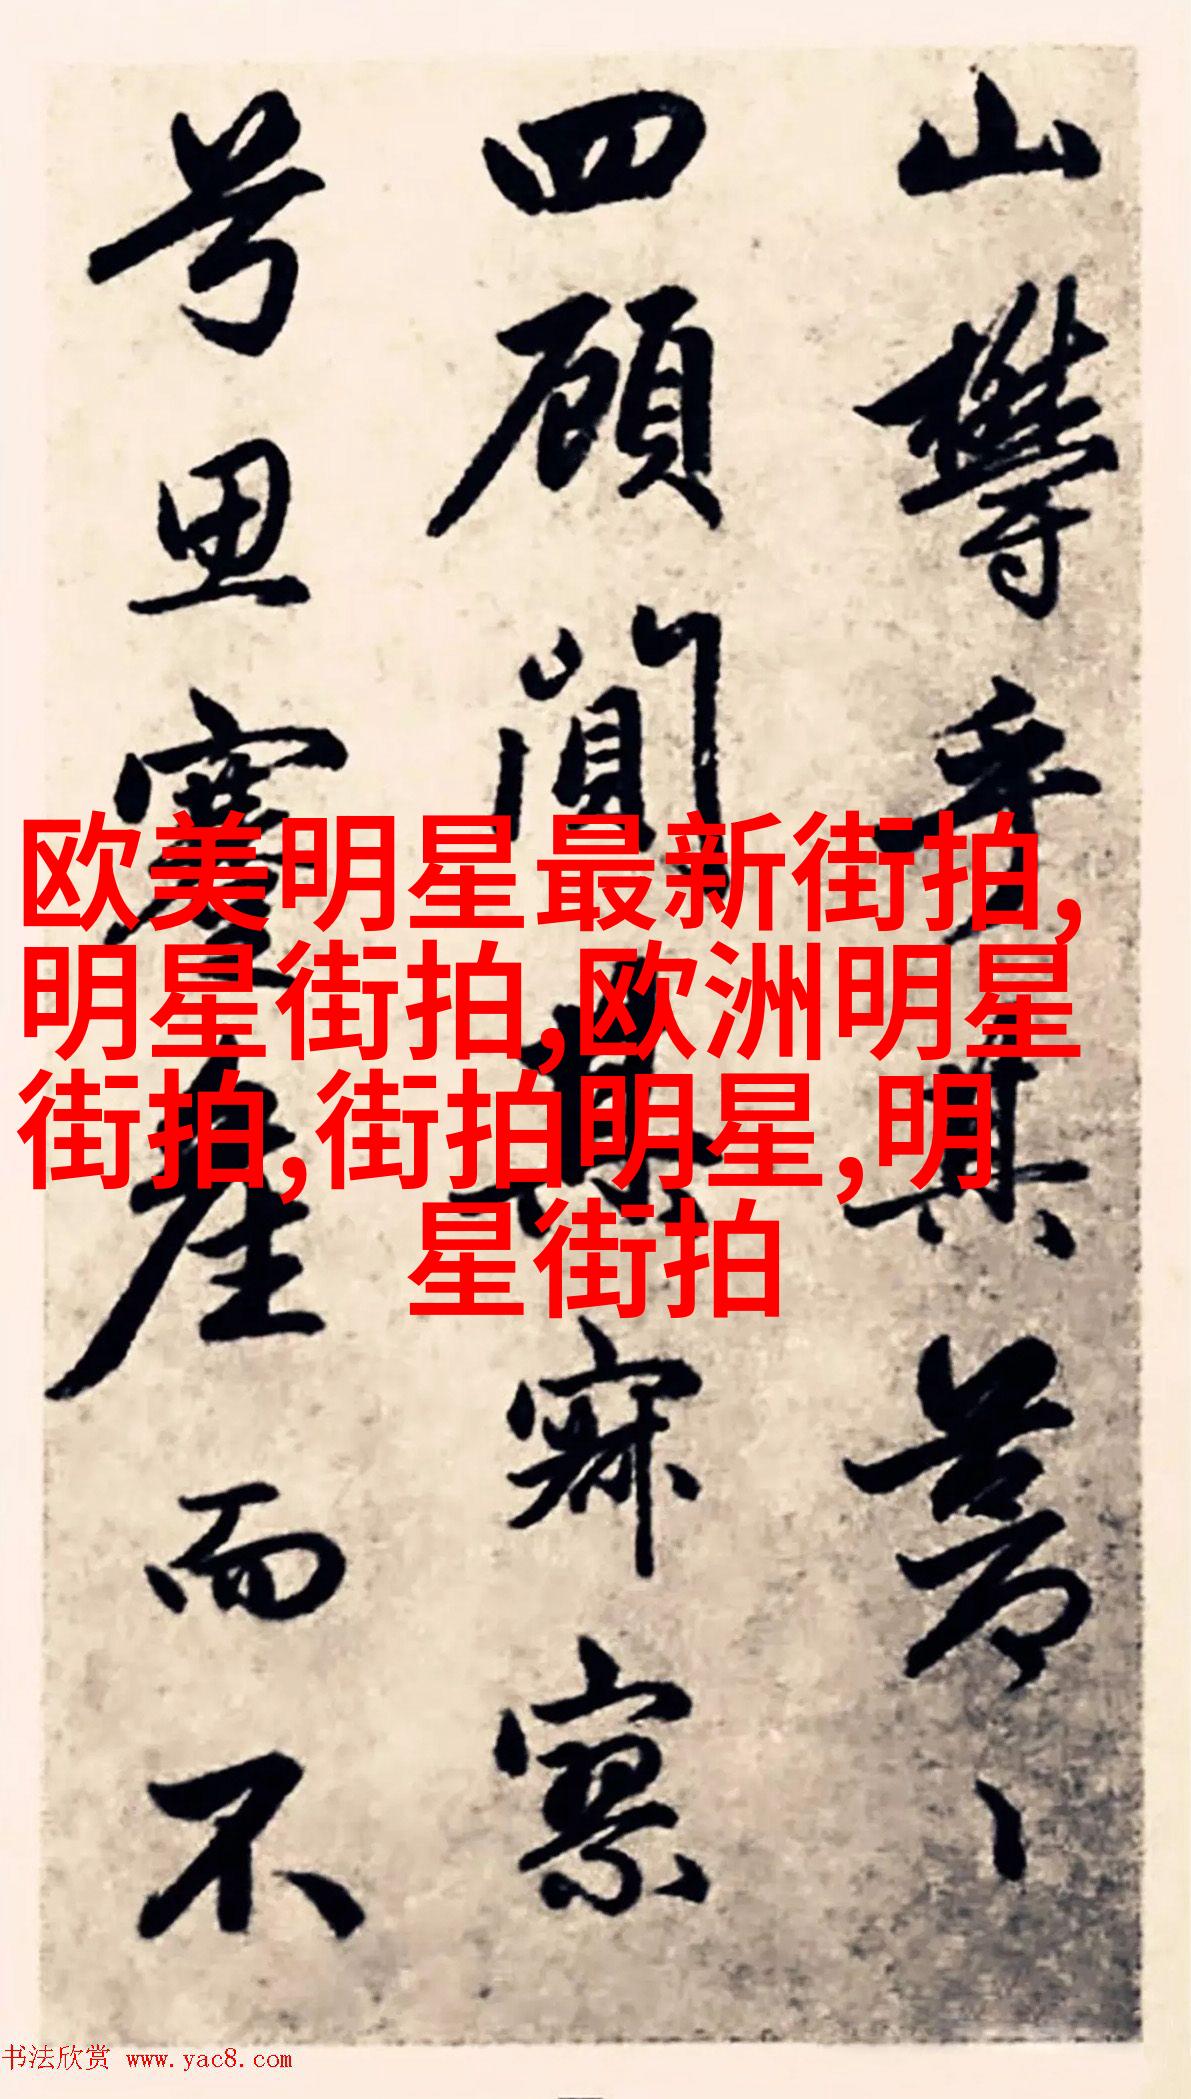 山欝乎其蒼〻
四顧闃其寂寥
号思蹇產而不
欧美明星最新街拍,
明星街拍,欧洲明星
街拍,街拍明星,明
星街拍
书法欣赏 www.yac8.com